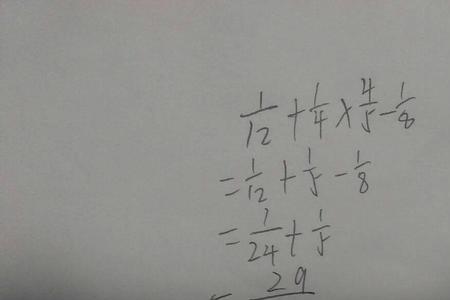 1/12 + 1/4 × 4/5 - 1/8
= 1/12 + 1/5 - 1/8
= 1/24 + 1/5
= 29/